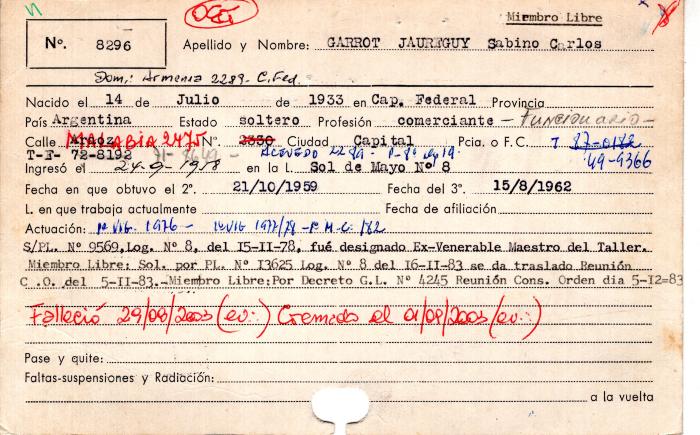 Miembro Libre
Nº. 8296
Apellido y Nombre: GARROT JAUREGUY Sabino Carlos
Dom: Armenia 2289 - C. Fed.
Nacido el 14 de Julio de 1933 en Cap. Federal Provincia
País Argentina Estado soltero Profesión comerciante - Funcionario -
Calle MALABIA 2475 Nº 2330 Ciudad Capital Pcia. o F.C. T 87-0182
T-F- 72-8192 ACEVEDO 2289 - 49-9366
Ingresó el 24-9-1958 en la L. Sol de Mayo Nº 8
Fecha en que obtuvo el 2º. 21/10/1959 Fecha del 3º. 15/8/1962
L. en que trabaja actualmente Fecha de afiliación
Actuación: 1º VIG. 1976 - 1º VIG 1977/78 - 1º M.C. /82
S/PL. Nº 9569,Log. Nº 8, del I5-II-78, fué designado Ex-Venerable Maestro del Taller.
Miembro Libre: Sol. por PL. Nº I3625 Log. Nº 8 del I6-II-83 se da traslado Reunión
C .O. del 5-II-83.-Miembro Libre:Por Decreto G.L. Nº 4245 Reunión Cons. Orden dia 5-I2=83
Falleció 29/08/2003 (ev:.) Cremado el 01/09/2003 (ev:.)
Pase y quite:
Faltas-suspensiones y Radiación:
a la vuelta